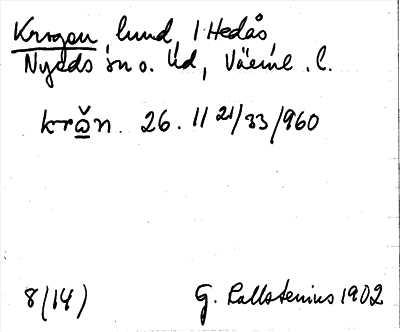 Krogen, lund, 1 Hedås,
Nyeds sn o. hd, Värml. l.
krǒ̲n. 26. 11 21/33/960
8(14) G. Kallstenius 1902